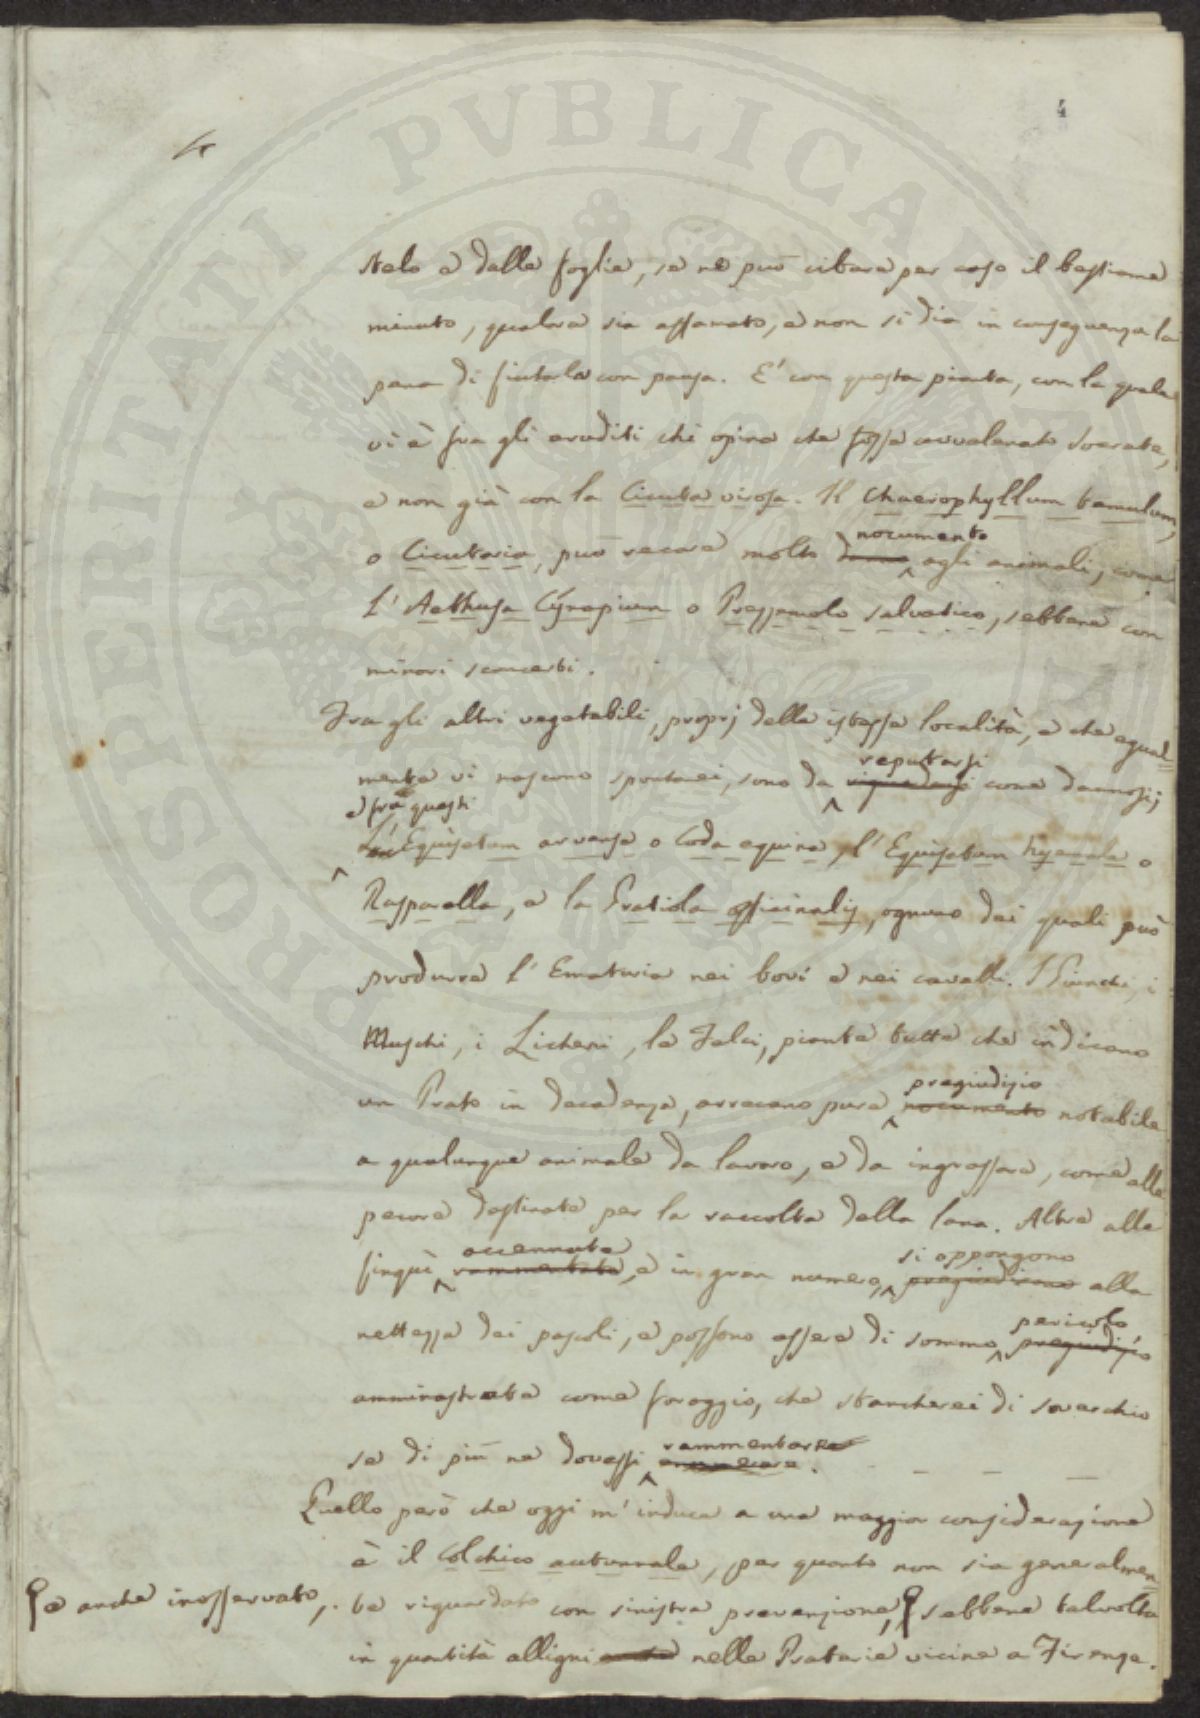 4
4
stelo e dalle foglie, se ne può cibare per caso il bestiame
minuto, qualora sia affamato, e non si dia in conseguenza la
pena di fiutarla con pausa. E' con questa pianta, con la quale
vi è fra gli eruditi chi opina che fosse avvelenato Socrate,
e non già con la Cicuta virosa. Il Chaerophyllum temulum,
nocumento
o Cicutaria, può recare molto danno agli animali, come
l'Aethusa Cynapium o Prezzemolo salvatico, sebbene con
minori sconcerti.
Fra gli altri vegetabili, proprj della istessa località, e che egual-
reputarsi
mente vi nascono spontanei, sono da riguardarsi come dannosi;
e fra questi
L'Equisetum arvense o Coda equina, l'Equisetum hyemale o
Rasparella, e la Gratiola officinalis, ognuno dei quali può
produrre l'Ematuria nei bovi e nei cavalli. I Giunchi, i
Muschi, i Licheni, le Felci, piante tutte che indicano
pregiudizio
un Prato in decadenza, arrecano pure nocumento notabile
a qualunque animale da lavoro, e da ingrassare, come alle
pecore destinate per la raccolta della lana. Altre alle
accennate si oppongono
finquì rammentate, e in gran numero, pregiudicano alla
pericolo
nettezza dei pascoli, e possono essere di sommo pregiudizio
amministrate come foraggio, che stancherei di soverchio
rammentare
se di più ne dovessi
Quello però che oggi m'induce a una maggior considerazione
è il Colchico autunnale, per quanto non sia generalmen-
e anche inosservato, te riguardato con sinistra prevenzione, sebbene talvolta
in quantità alligni nelle Praterie vicine a Firenze.
PROSPERITATI PVBLICAE